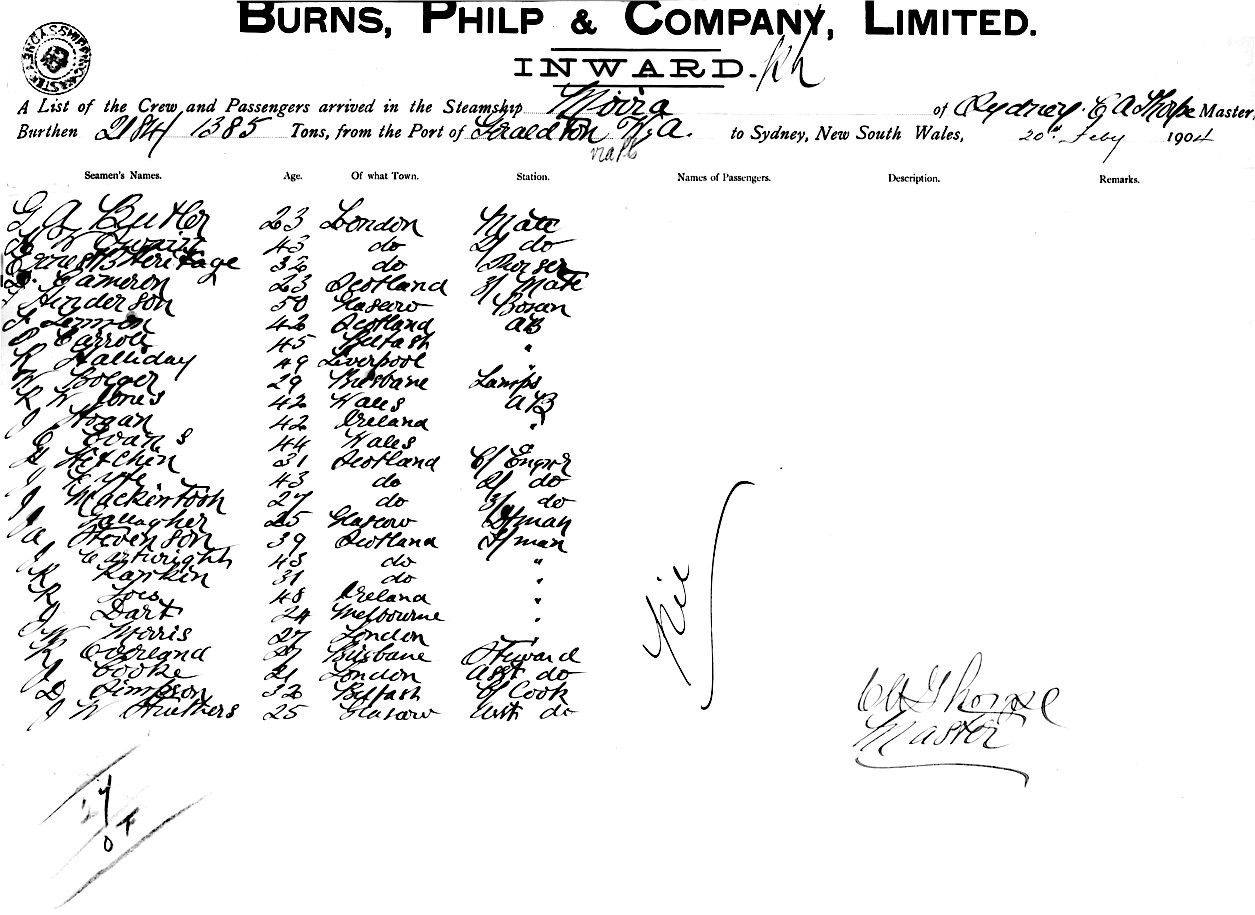 BURNS, PHILP & COMPANY, LIMITED.
INWARD.
A List of the Crew and Passengers arrived in the Steamship Moira of Sydney. C A Thorpe Master,
Burthen 2184/1385 Tons, from the Port of Geraldton W.A. to Sydney, New South Wales, 20th Feby 1904
Seamen's Names. Age. Of what Town. Station. Names of Passengers. Description. Remarks.
G A Butler 23 London Mate
W 43 do 2/ do
Ernest B Heritage 32 do Purser
D. Cameron 23 Scotland 3/ Mate
Henderson 50 Glasgow Bosan
Lennon 42 Scotland AB
P Carroll 45 Belfast "
R Halliday 49 Liverpool "
W Bolger 29 Brisbane Lamps
R W Jones 42 Wales AB
J Hogan 42 Ireland "
E Evans 44 Wales
G Hitchin 31 Scotland C/ Engnr
43 do 2/ do
J Mackintosh 27 do 3/ do
J Gallagher 25 Glasgow D/man
A Stevenson 39 Scotland F/man
J Cartwright 43 do "
R Rankin 31 do "
R 48 Ireland "
J Dart 24 Melbourne "
W Morris 27 London "
R 27 Brisbane Steward
J Cooke 21 London Asst do
D Simpson 32 Belfast C/ Cook
J W Struthers 25 Glasgow Asst do
Nil
C A Thorpe
Master